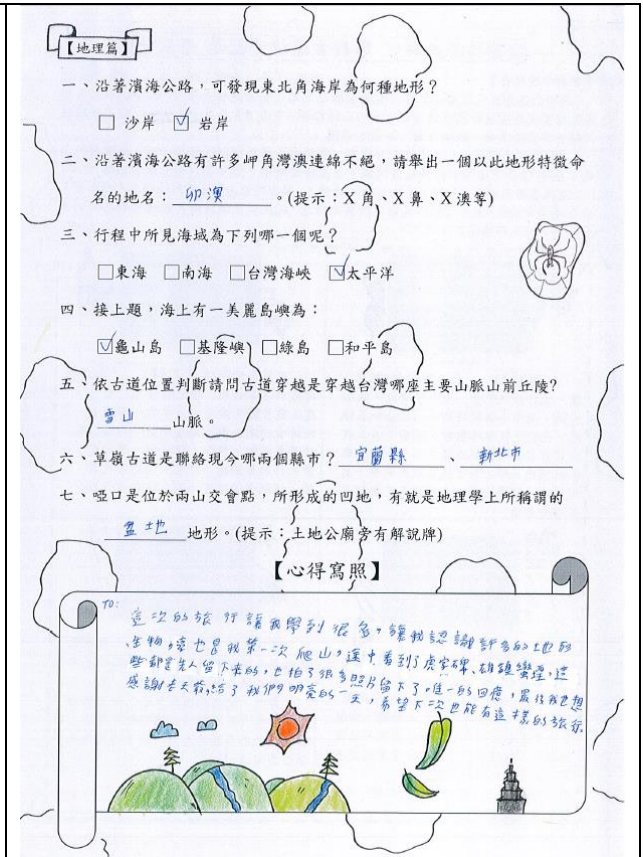 【地理篇】
一、沿著濱海公路，可發現東北角海岸為何種地形？
□ 沙岸 ☑ 岩岸
二、沿著濱海公路有許多岬角灣澳連綿不絕，請舉出一個以此地形特徵命
名的地名：卯澳。(提示：X角、X鼻、X澳等)
三、行程中所見海域為下列哪一個呢？
□東海 □南海 □台灣海峽 ☑太平洋
四、接上題，海上有一美麗島嶼為：
☑龜山島 □基隆嶼 □綠島 □和平島
五、依古道位置判斷請問古道穿越是穿越台灣哪座主要山脈山前丘陵?
雪山山脈。
六、草嶺古道是聯絡現今哪兩個縣市？宜蘭縣、新北市
七、啞口是位於兩山交會點，所形成的凹地，有就是地理學上所稱謂的
盆地地形。(提示：土地公廟旁有解說牌)
【心得寫照】
TO:
這次的旅行讓我學到很多，讓我認識許多的地形
、生物，這也是我第一次爬山，途中看到了虎字碑、雄鎮蠻煙，這
些都是先人留下來的，也拍了很多照片留下了唯一的回憶，最後我也想
感謝老天爺，給了我們明亮的一天，希望下次也能有這樣的旅行